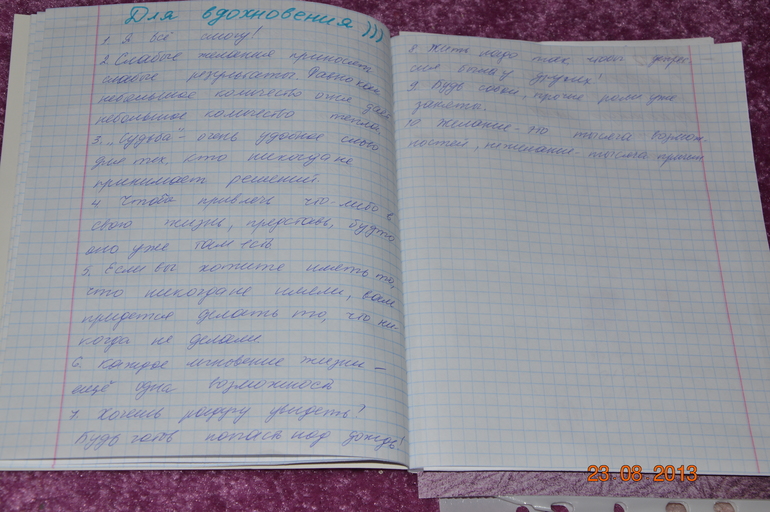 Для вдохновения)))
1. Я всё смогу!
2. Слабые желания приносят
слабые результаты. Равно как
небольшое количество огня даёт
небольшое количество тепла.
3. "Судьба" - очень удобное слово
для тех, кто никогда не
принимает решений.
4. Чтобы привлечь что-либо в
свою жизнь, представь, будто
оно уже там есть
5. Если вы хотите иметь то,
что никогда не имели, вам
придётся делать то, что ни-
когда не делали.
6. Каждое мгновение жизни –
ещё одна возможность
7. Хочешь радугу увидеть?
Будь готов попасть под дождь!
8. Жить надо так, чтобы депрес-
сия была у других!
9. Будь собой, прочие роли уже
заняты.
10. Желание - это тысяча возмож-
ностей, нежелание - тысяча причин
23 08 2013